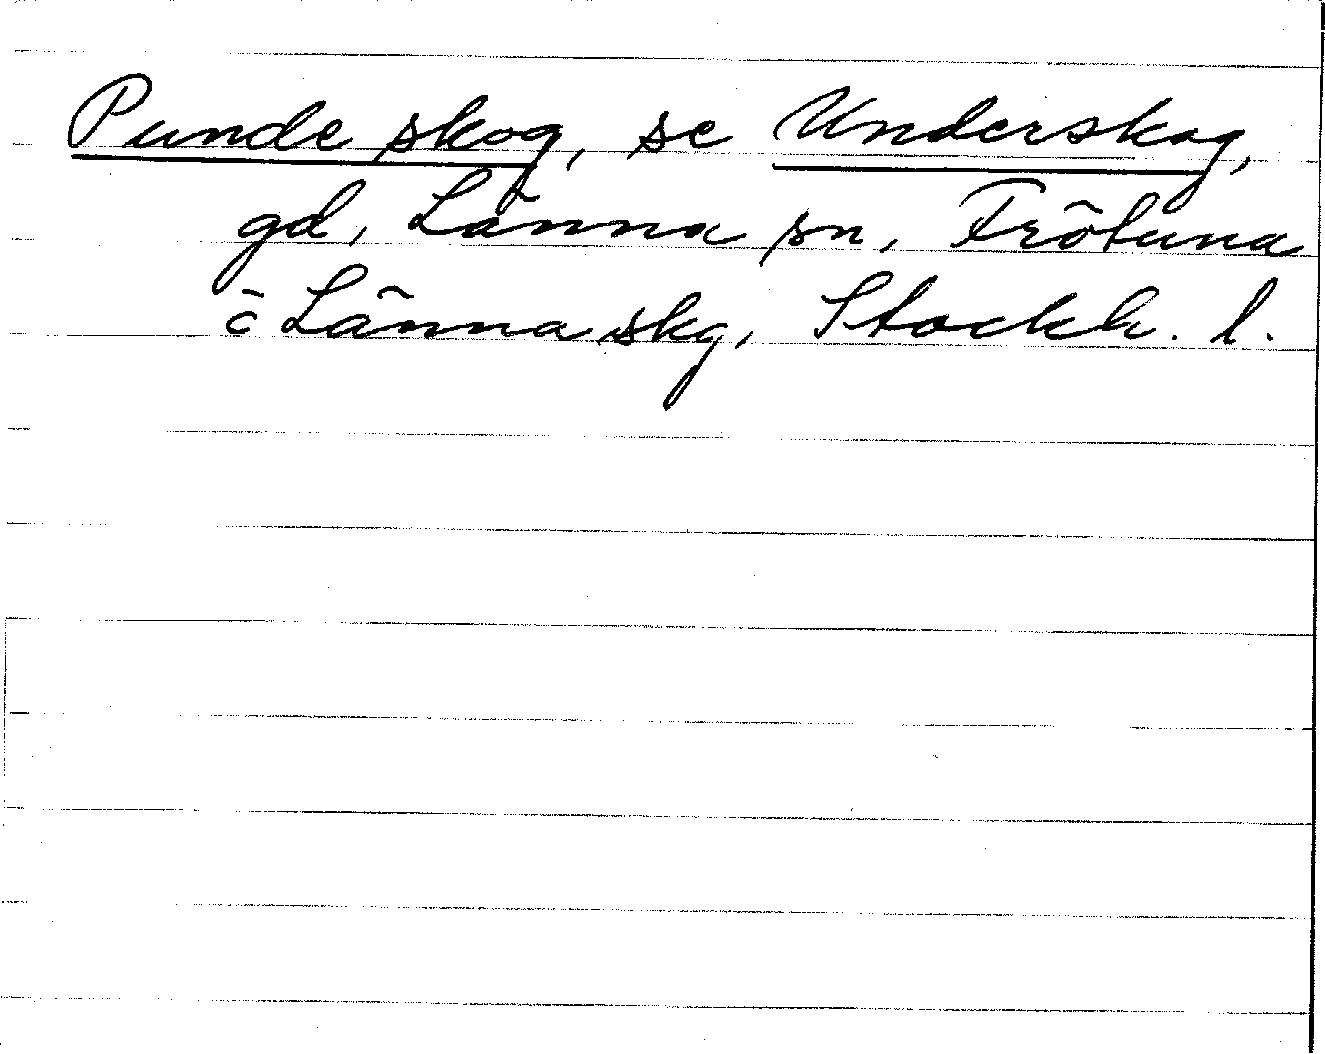 Pundeskog, se Underskog,
gd, Länna sn, Frötuna
o Länna skg, Stockh. l.